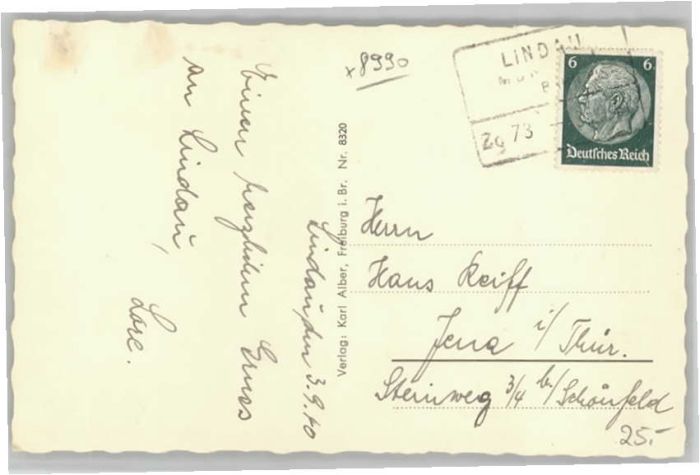 x8990
LINDAU
Zg 73
6 6
Deutsches Reich
Lindau, den 3.9.40
Einen herzlichen Gruss
an Lindau,
Lore.
Verlag: Karl Alber, Freiburg i. Br. Nr. 8320
Herrn
Hans Reiff
Jena i/Thür.
Steinweg 3/4 b/Schönfeld
25.-